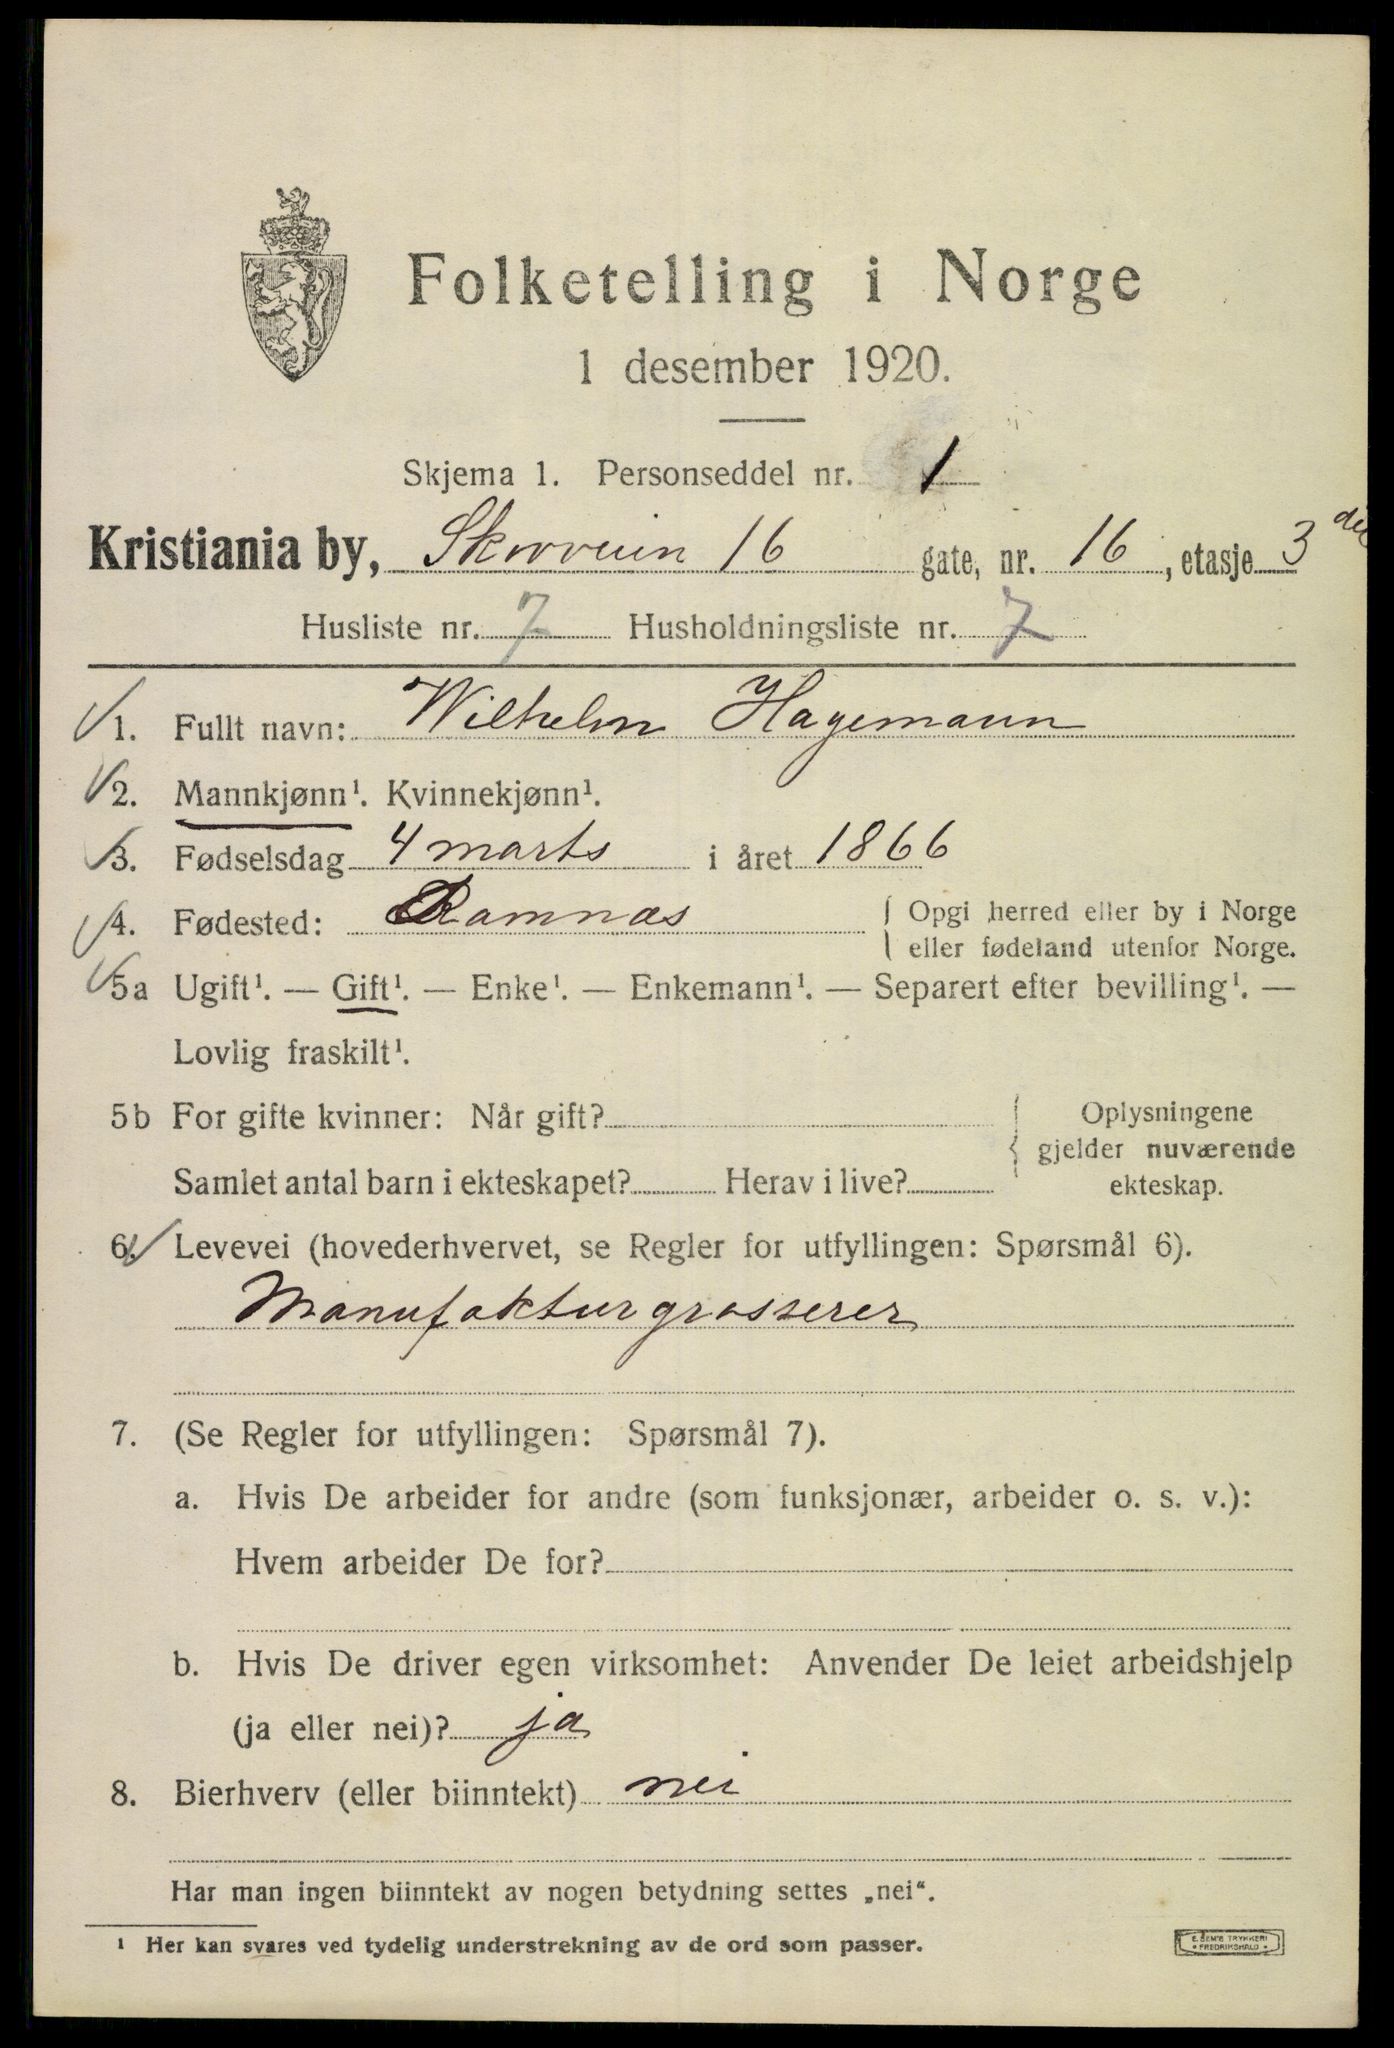 Folketelling i Norge
1 desember 1920.
Skjema 1. Personseddel nr. 1
Kristiania by, Skovveien 16 gate, nr. 16, etasje 3 die
Husliste nr. 7 Husholdningsliste nr. 7
1. Fullt navn: Wilhelm Hagemann
2. Mannkjønn¹. Kvinnekjønn¹.
3. Fødselsdag 4 marts i året 1866
4. Fødested: Ramnæs { Opgi herred eller by i Norge
eller fødeland utenfor Norge.
5a Ugift¹. — Gift¹. — Enke¹. — Enkemann¹. — Separert efter bevilling¹. —
Lovlig fraskilt¹.
5b For gifte kvinner: Når gift? { Oplysningene
gjelder nuværende
Samlet antal barn i ekteskapet? Herav i live? ekteskap.
6. Levevei (hovederhvervet, se Regler for utfyllingen: Spørsmål 6).
Manufakturgrosserer
7. (Se Regler for utfyllingen: Spørsmål 7).
a. Hvis De arbeider for andre (som funksjonær, arbeider o. s. v.):
Hvem arbeider De for?
b. Hvis De driver egen virksomhet: Anvender De leiet arbeidshjelp
(ja eller nei)? ja
8. Bierhverv (eller biinntekt) nei
Har man ingen biinntekt av nogen betydning settes „nei".
¹ Her kan svares ved tydelig understrekning av de ord som passer.
E. SEM'S TRYKKERI
• FREDRIKSHALD •